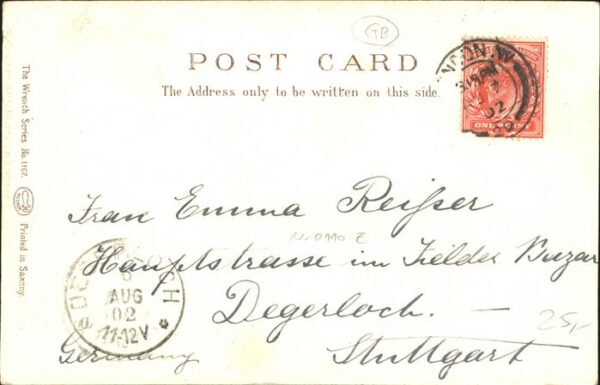 GB
POST CARD
The Address only to be written on this side.
The Wrench Series No. 1167.
Printed in Saxony
NDON. W
3.15 PM
7
02
ONE PENNY
Frau Emma Reißer
Hauptstrasse im
Degerloch. —
Stuttgart
Germany
DEGERLOCH
AUG
02
11-12V
25,-